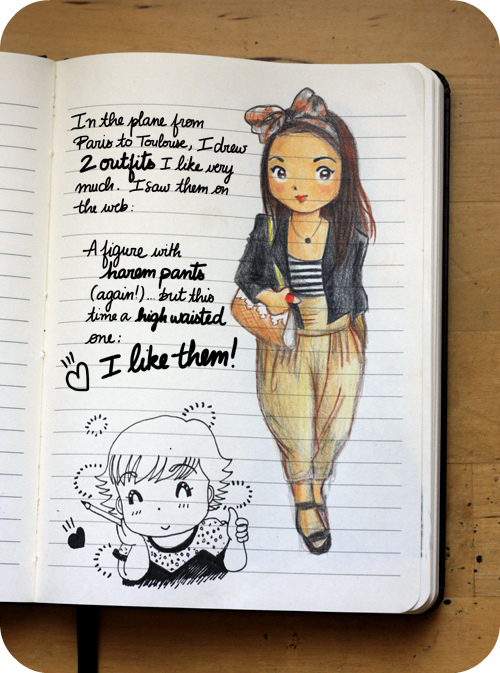 In the plane from
Paris to Toulouse, I drew
2 outfits I like very
much. I saw them on
the web:
A figure with
harem pants
(again!)... but this
time a high waisted
one:
I like them!